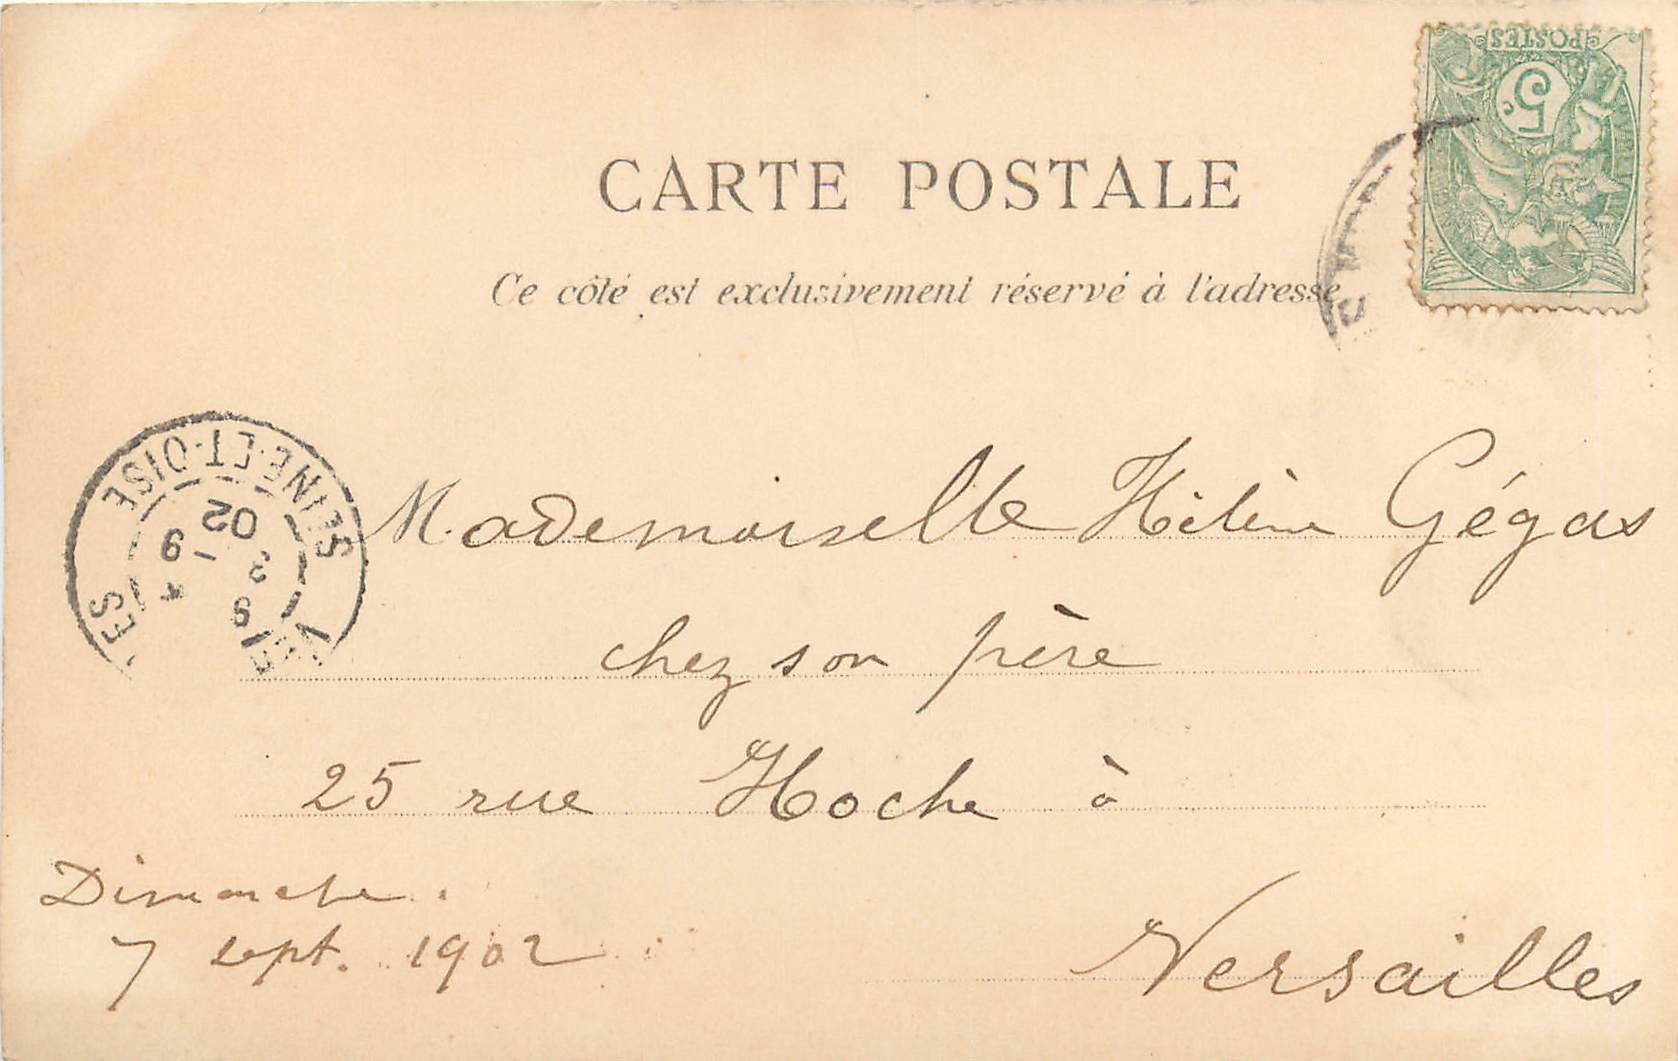 CARTE POSTALE
Ce côté est exclusivement réservé à l'adresse
POSTES
5c
SEINE-ET-OISE
02
Mademoiselle Hélène Gégas
chez son père
25 rue Hoche à
Versailles
Dimanche.
7 sept. 1902